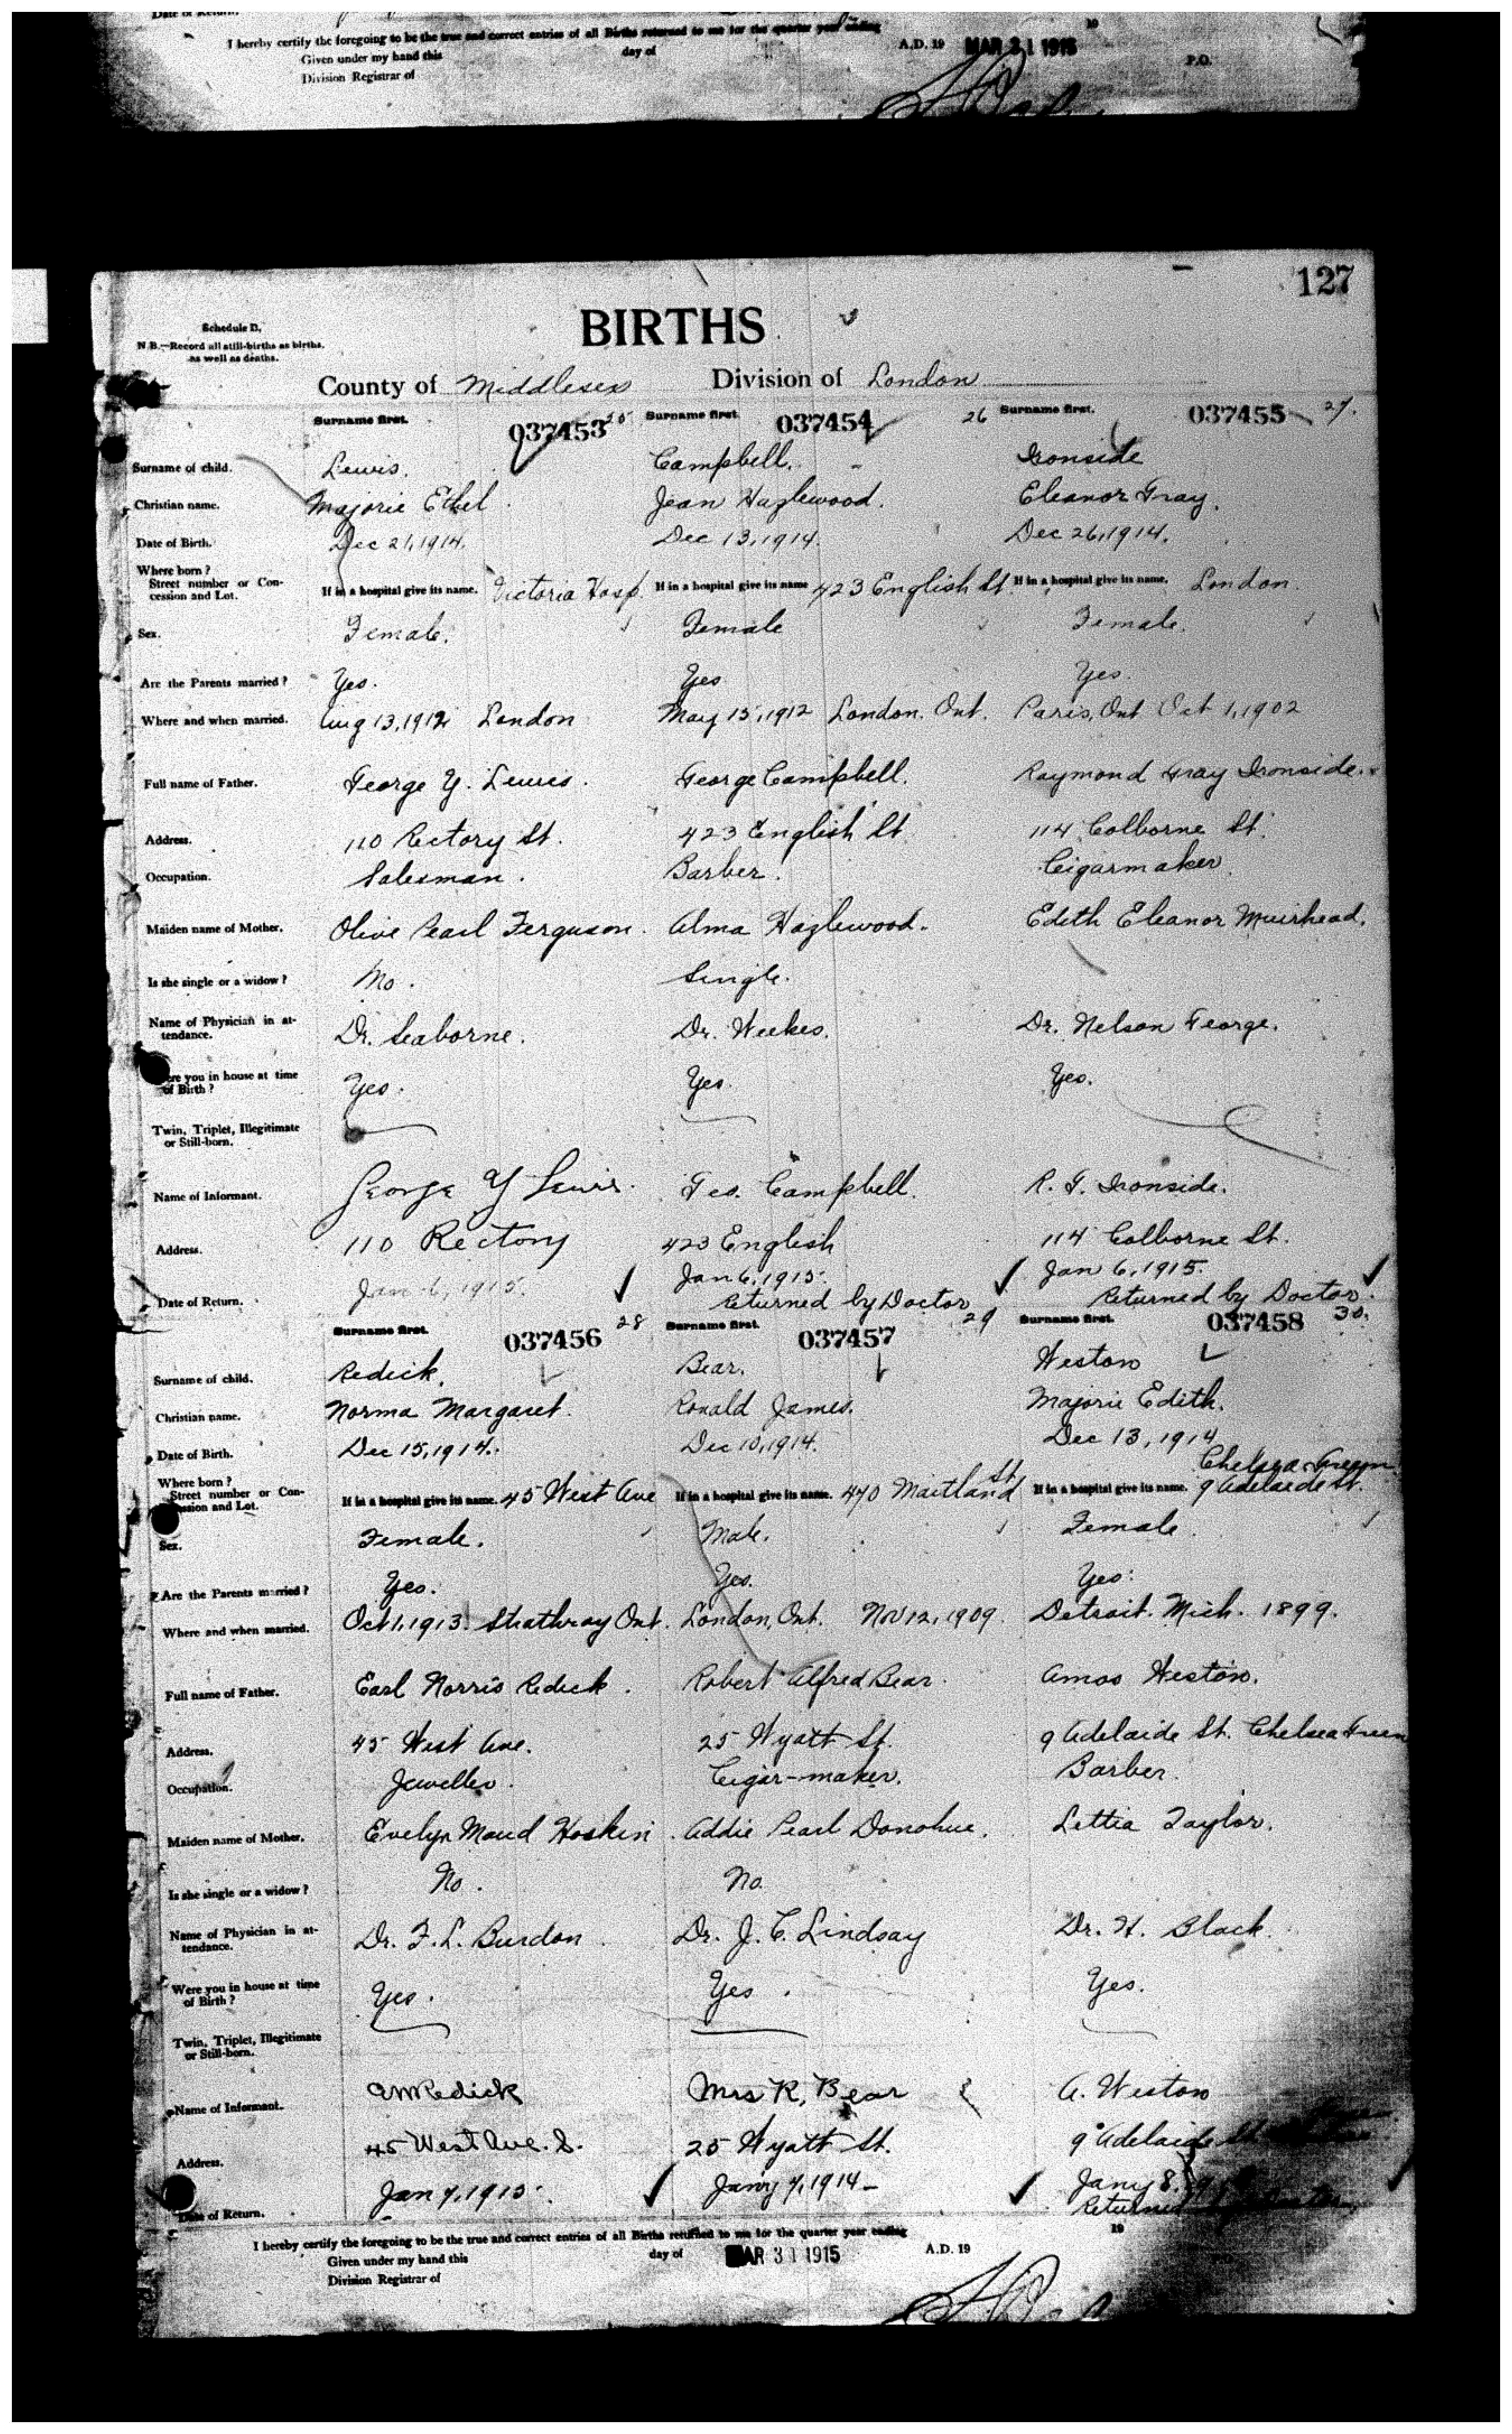 I hereby certify the foregoing to be the true and correct entries of all Births returned to me for the quarter year ending 19
Given under my hand this day of A.D. 19 MAR 31 1915
Division Registrar of P.O.
127
Schedule D.
N.B.—Record all still-births as births, as well as deaths.
BIRTHS
County of Middlesex Division of London
Surname first. 037453 25 Surname first. 037454 26 Surname first. 037455 27.
Surname of child. Lewis. Campbell. Ironside
Christian name. Majorie Ethel. Jean Hazlewood. Eleanor Gray.
Date of Birth. Dec 21, 1914. Dec 13, 1914. Dec 26, 1914.
Where born?
Street number or Concession and Lot. If in a hospital give its name. Victoria Hosp. If in a hospital give its name 423 English St. If in a hospital give its name. London.
Sex. Female. Female Female.
Are the Parents married? Yes. Yes Yes.
Where and when married. Aug 13, 1912 London May 15, 1912 London. Ont. Paris, Ont Oct 1, 1902
Full name of Father. George Y. Lewis. George Campbell. Raymond Gray Ironside.
Address. 110 Rectory St. 423 English St 114 Colborne St.
Occupation. Salesman. Barber. Cigarmaker.
Maiden name of Mother. Olive Pearl Ferguson. Alma Hazlewood. Edith Eleanor Muirhead.
Is she single or a widow? No. Single.
Name of Physician in attendance. Dr. Seaborne. Dr. Weekes. Dr. Nelson George.
Were you in house at time of Birth? Yes. Yes. Yes.
Twin, Triplet, Illegitimate or Still-born.
Name of Informant. George Y Lewis. Geo. Campbell. R. G. Ironside.
Address. 110 Rectory 423 English 114 Colborne St.
Date of Return. Jan 6, 1915. Jan 6, 1915. Returned by Doctor Jan 6, 1915. Returned by Doctor.
Surname first. 037456 28 Surname first. 037457 29 Surname first. 037458 30.
Surname of child. Redick. Bear. Weston
Christian name. Norma Margaret. Ronald James. Majorie Edith.
Date of Birth. Dec 15, 1914. Dec 10, 1914. Dec 13, 1914
Where born?
Street number or Concession and Lot. If in a hospital give its name. 45 West Ave If in a hospital give its name. 470 Maitland St If in a hospital give its name. Chelsea Green 9 Adelaide St.
Sex. Female. Male. Female.
Are the Parents married? Yes. Yes. Yes.
Where and when married. Oct 1, 1913. Strathroy Ont. London, Ont. Nov 12, 1909. Detroit. Mich. 1899.
Full name of Father. Earl Norris Redick. Robert Alfred Bear. Amos Weston.
Address. 45 West Ave. 25 Wyatt St. 9 Adelaide St. Chelsea Green
Occupation. Jeweller. Cigar-maker. Barber.
Maiden name of Mother. Evelyn Maud Hoskin. Addie Pearl Donohue. Lettia Taylor.
Is she single or a widow? No. No.
Name of Physician in attendance. Dr. F. L. Burdon. Dr. J. C. Lindsay Dr. H. Black.
Were you in house at time of Birth? Yes. Yes. Yes.
Twin, Triplet, Illegitimate or Still-born.
Name of Informant. Redick Mrs R. Bear A. Weston
Address. 45 West Ave. S. 25 Wyatt St. 9 Adelaide St
Date of Return. Jan 7, 1915. Jan'y 7, 1914 Jany 8, Returned
I hereby certify the foregoing to be the true and correct entries of all Births returned to me for the quarter year ending 19
Given under my hand this day of MAR 31 1915 A.D. 19
Division Registrar of P.O.